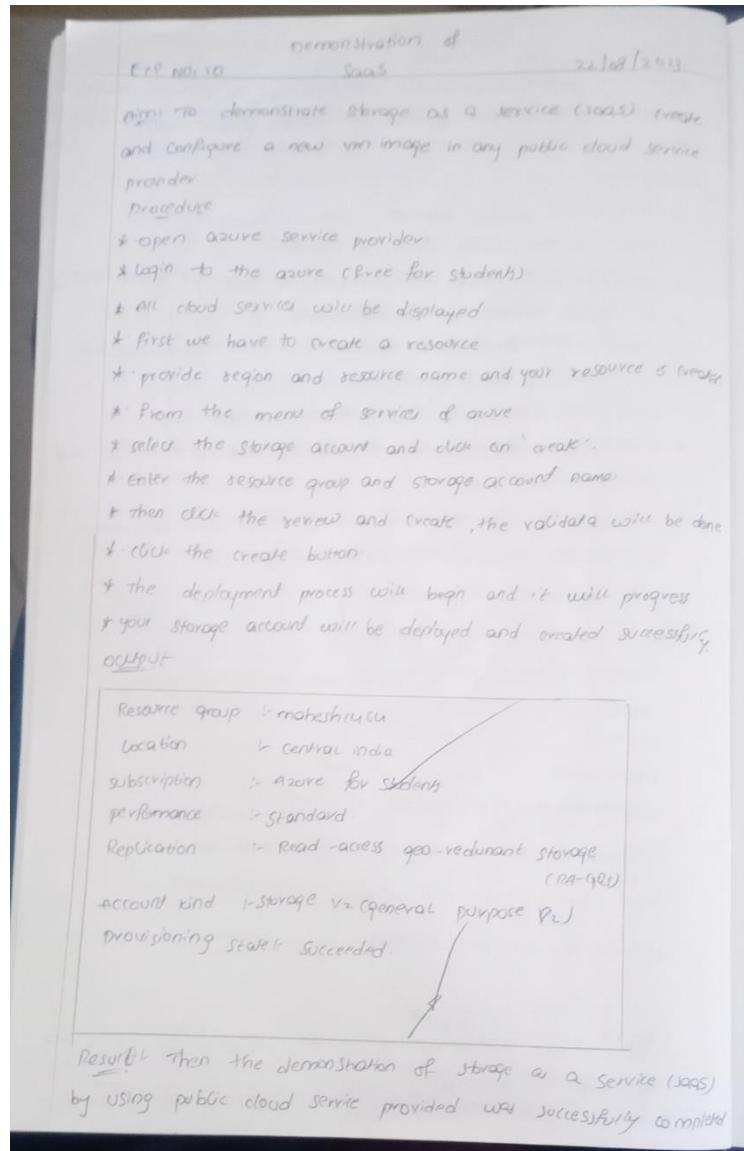 Demonstration of
Exp NO: 10 SaaS 22/08/2023
Aim: To demonstrate storage as a service (SaaS) create
and configure a new vm image in any public cloud service
provider
Procedure
* open azure service provider.
* Login to the azure (free for students).
* All cloud services will be displayed.
* first we have to create a resource
* provide region and resource name and your resource is create
* From the menu of services of azure
* select the storage account and click on 'create'.
* Enter the resource group and storage account name.
* then click the review and create, the validata will be done
* click the create button.
* the deployment process will begin and it will progress
* your storage account will be deployed and created successfully.
output
Resource group :-
Location :- central india
subscription :- Azure for students
performance :- standard
Replication :- Read-access geo-redunant storage
(RA-GRS)
Account kind :- storage V2 (general purpose V2)
provisioning state :- succeeded
Result:- Then the demonstration of storage as a service (SaaS)
by using public cloud service provided was successfully completed